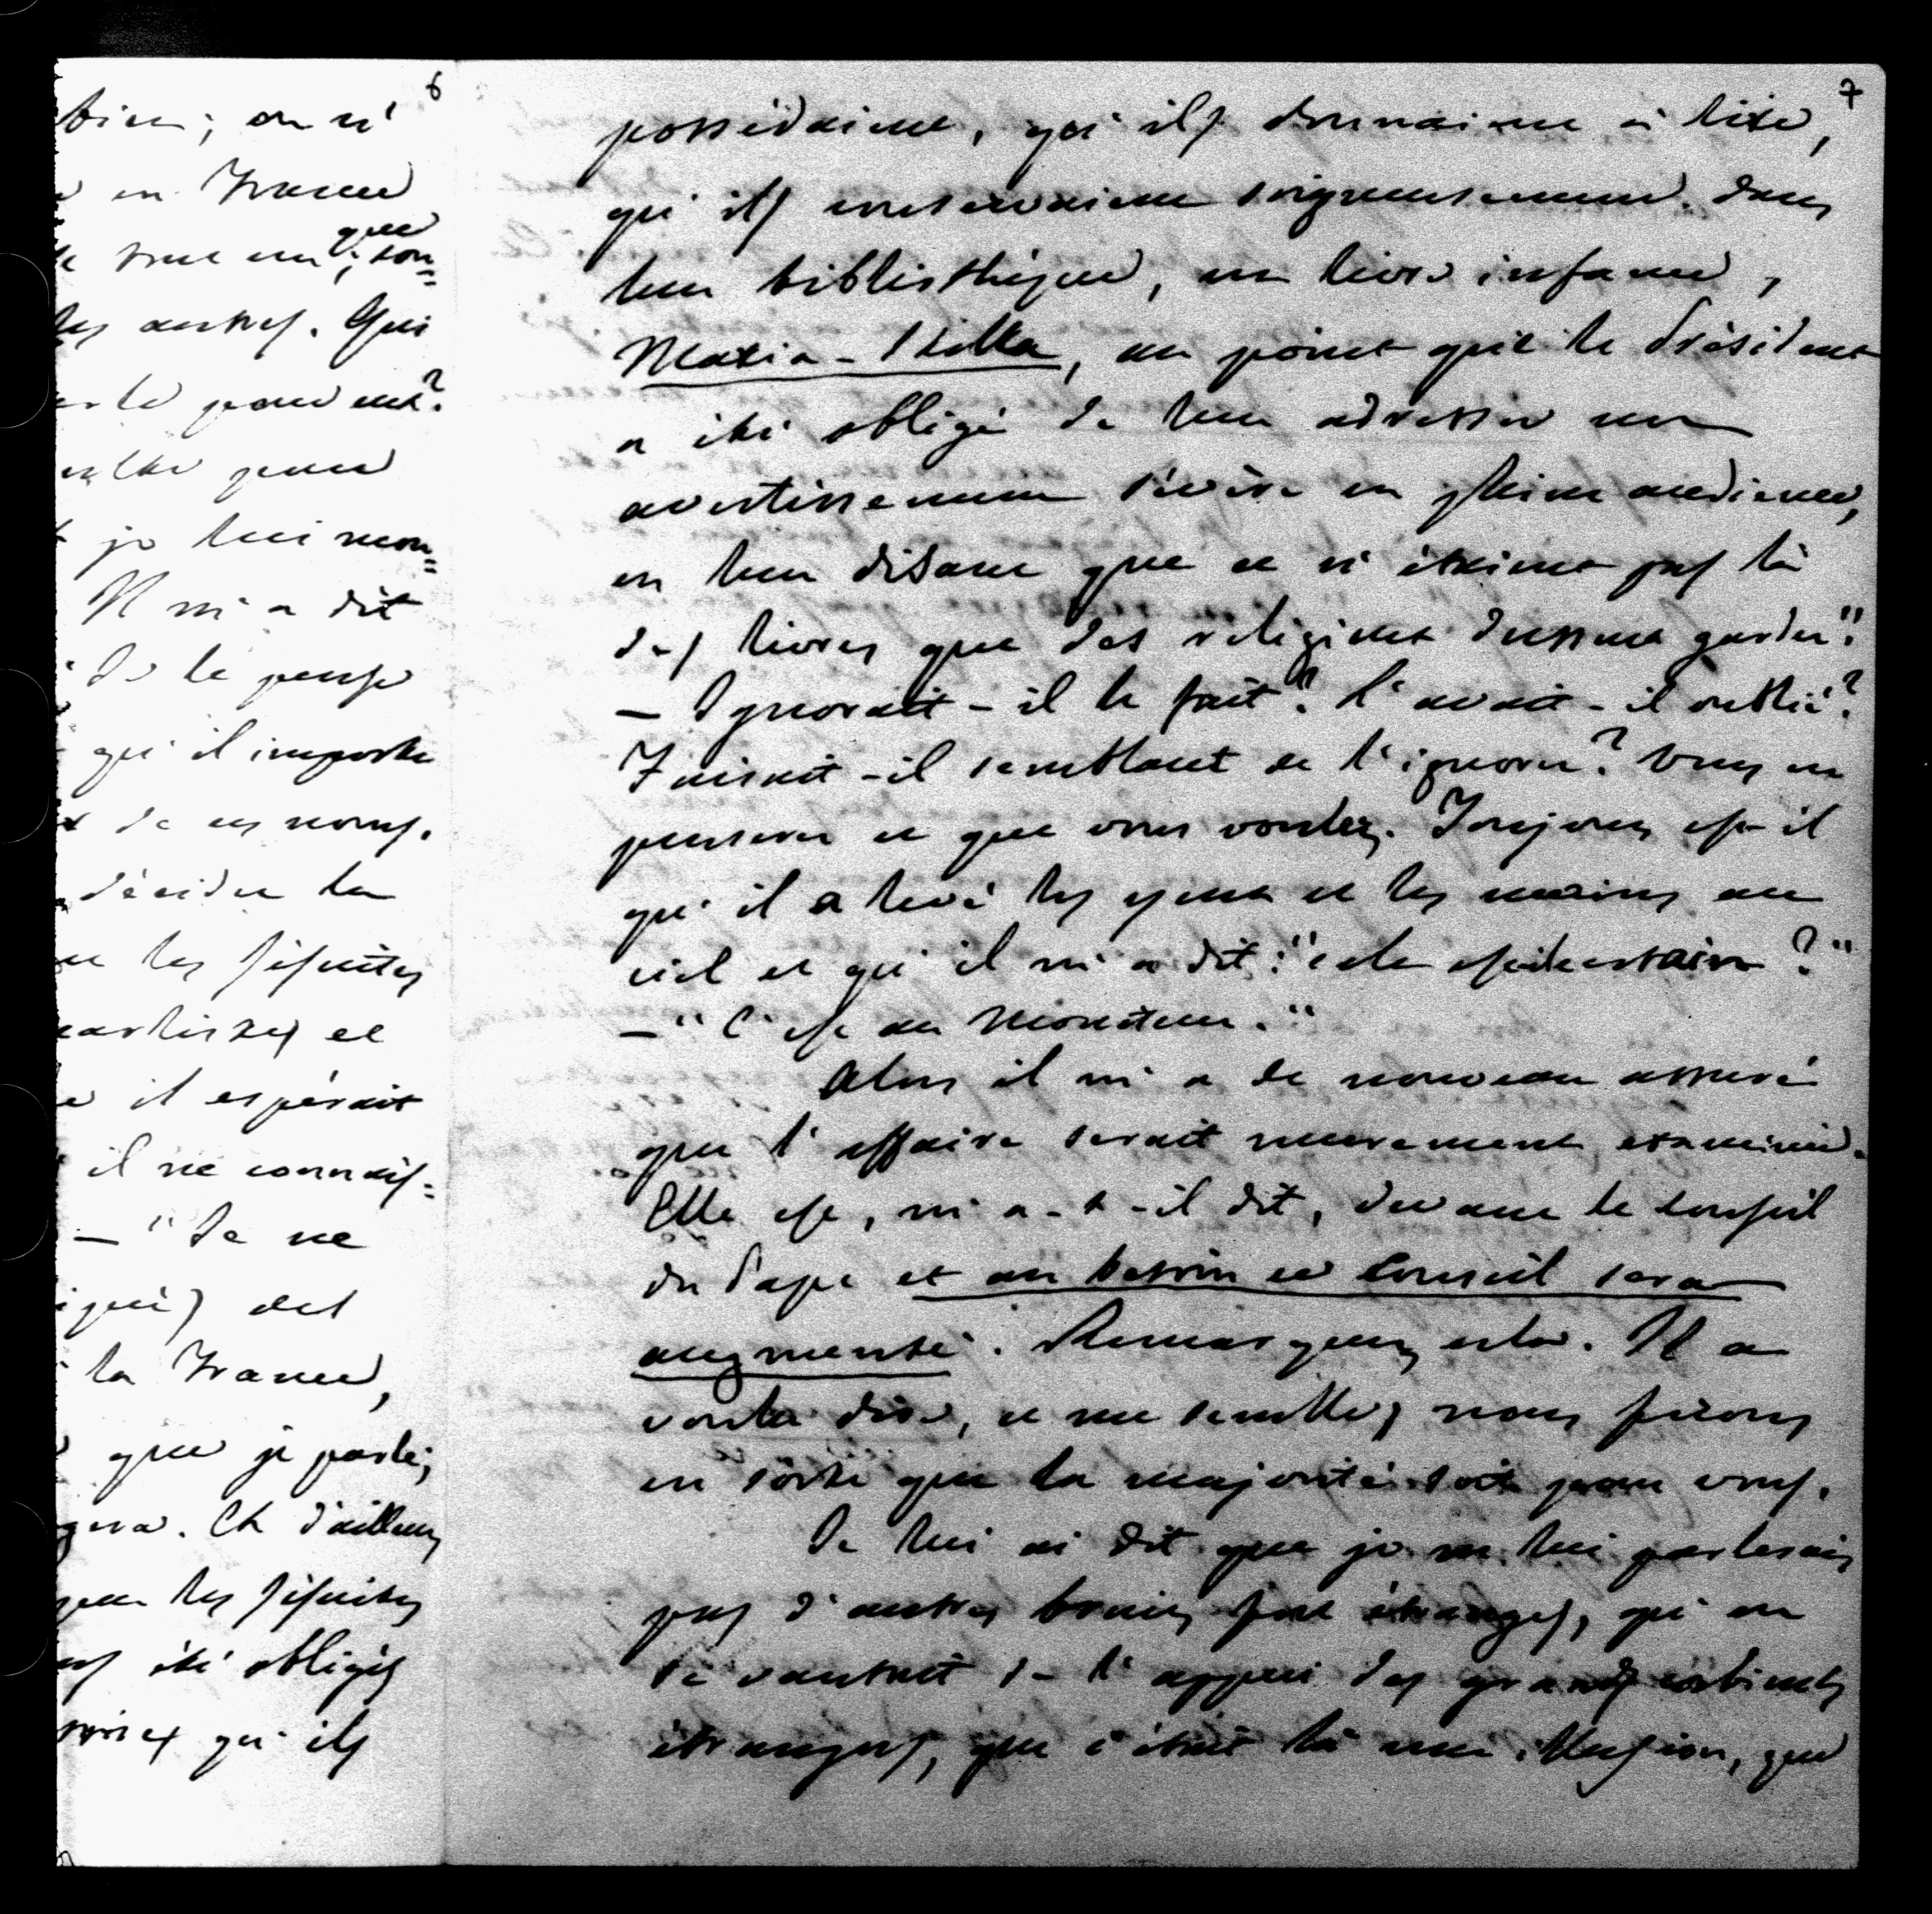 6
bien ; on n'
en France
que
son=
les autres. Qui
pour eux?
pour
je lui mon=
Il m'a dit
Je le pense
qu'il importe
de ces noms.
décider la
les Jésuites
et
il espérait
il ne connais=
— "Je ne
des
la France,
que je parle;
Et d'ailleurs
que les Jésuites
été obligés
qu'ils
7
possédaient, qu'ils donnaient à lire,
qu'ils conservaient soigneusement dans
leur bibliothèque, un livre infame,
Maria-Stella, au point que le Président
a été obligé de leur adresser un
avertissement sévère en pleine audience,
en leur disant que ce n'étaient pas là
des livres que des religieux dussent garder".
— Ignorait-il le fait? l'avait-il oublié?
Faisait-il semblant de l'ignorer? Vous en
penserez ce que vous voudrez. Toujours est-il
qu'il a levé les yeux et les mains au
ciel et qu'il m'a dit: "cela est-il certain?"
— "C'est au Moniteur."
Alors il m'a de nouveau assuré
que l'affaire serait murement examinée.
Elle est, m'a-t-il dit, devant le conseil
du Pape et au besoin ce Conseil sera
augmenté. Remarquez cela. Il a
voulu dire, ce me semble, nous ferons
en sorte que la majorité soit pour vous.
Je lui ai dit que je ne lui parlerais
pas d'autres bruits fort étranges, qu'on
se vantait de l'appui des grands cabinets
étrangers, que c'était là une illusion, que